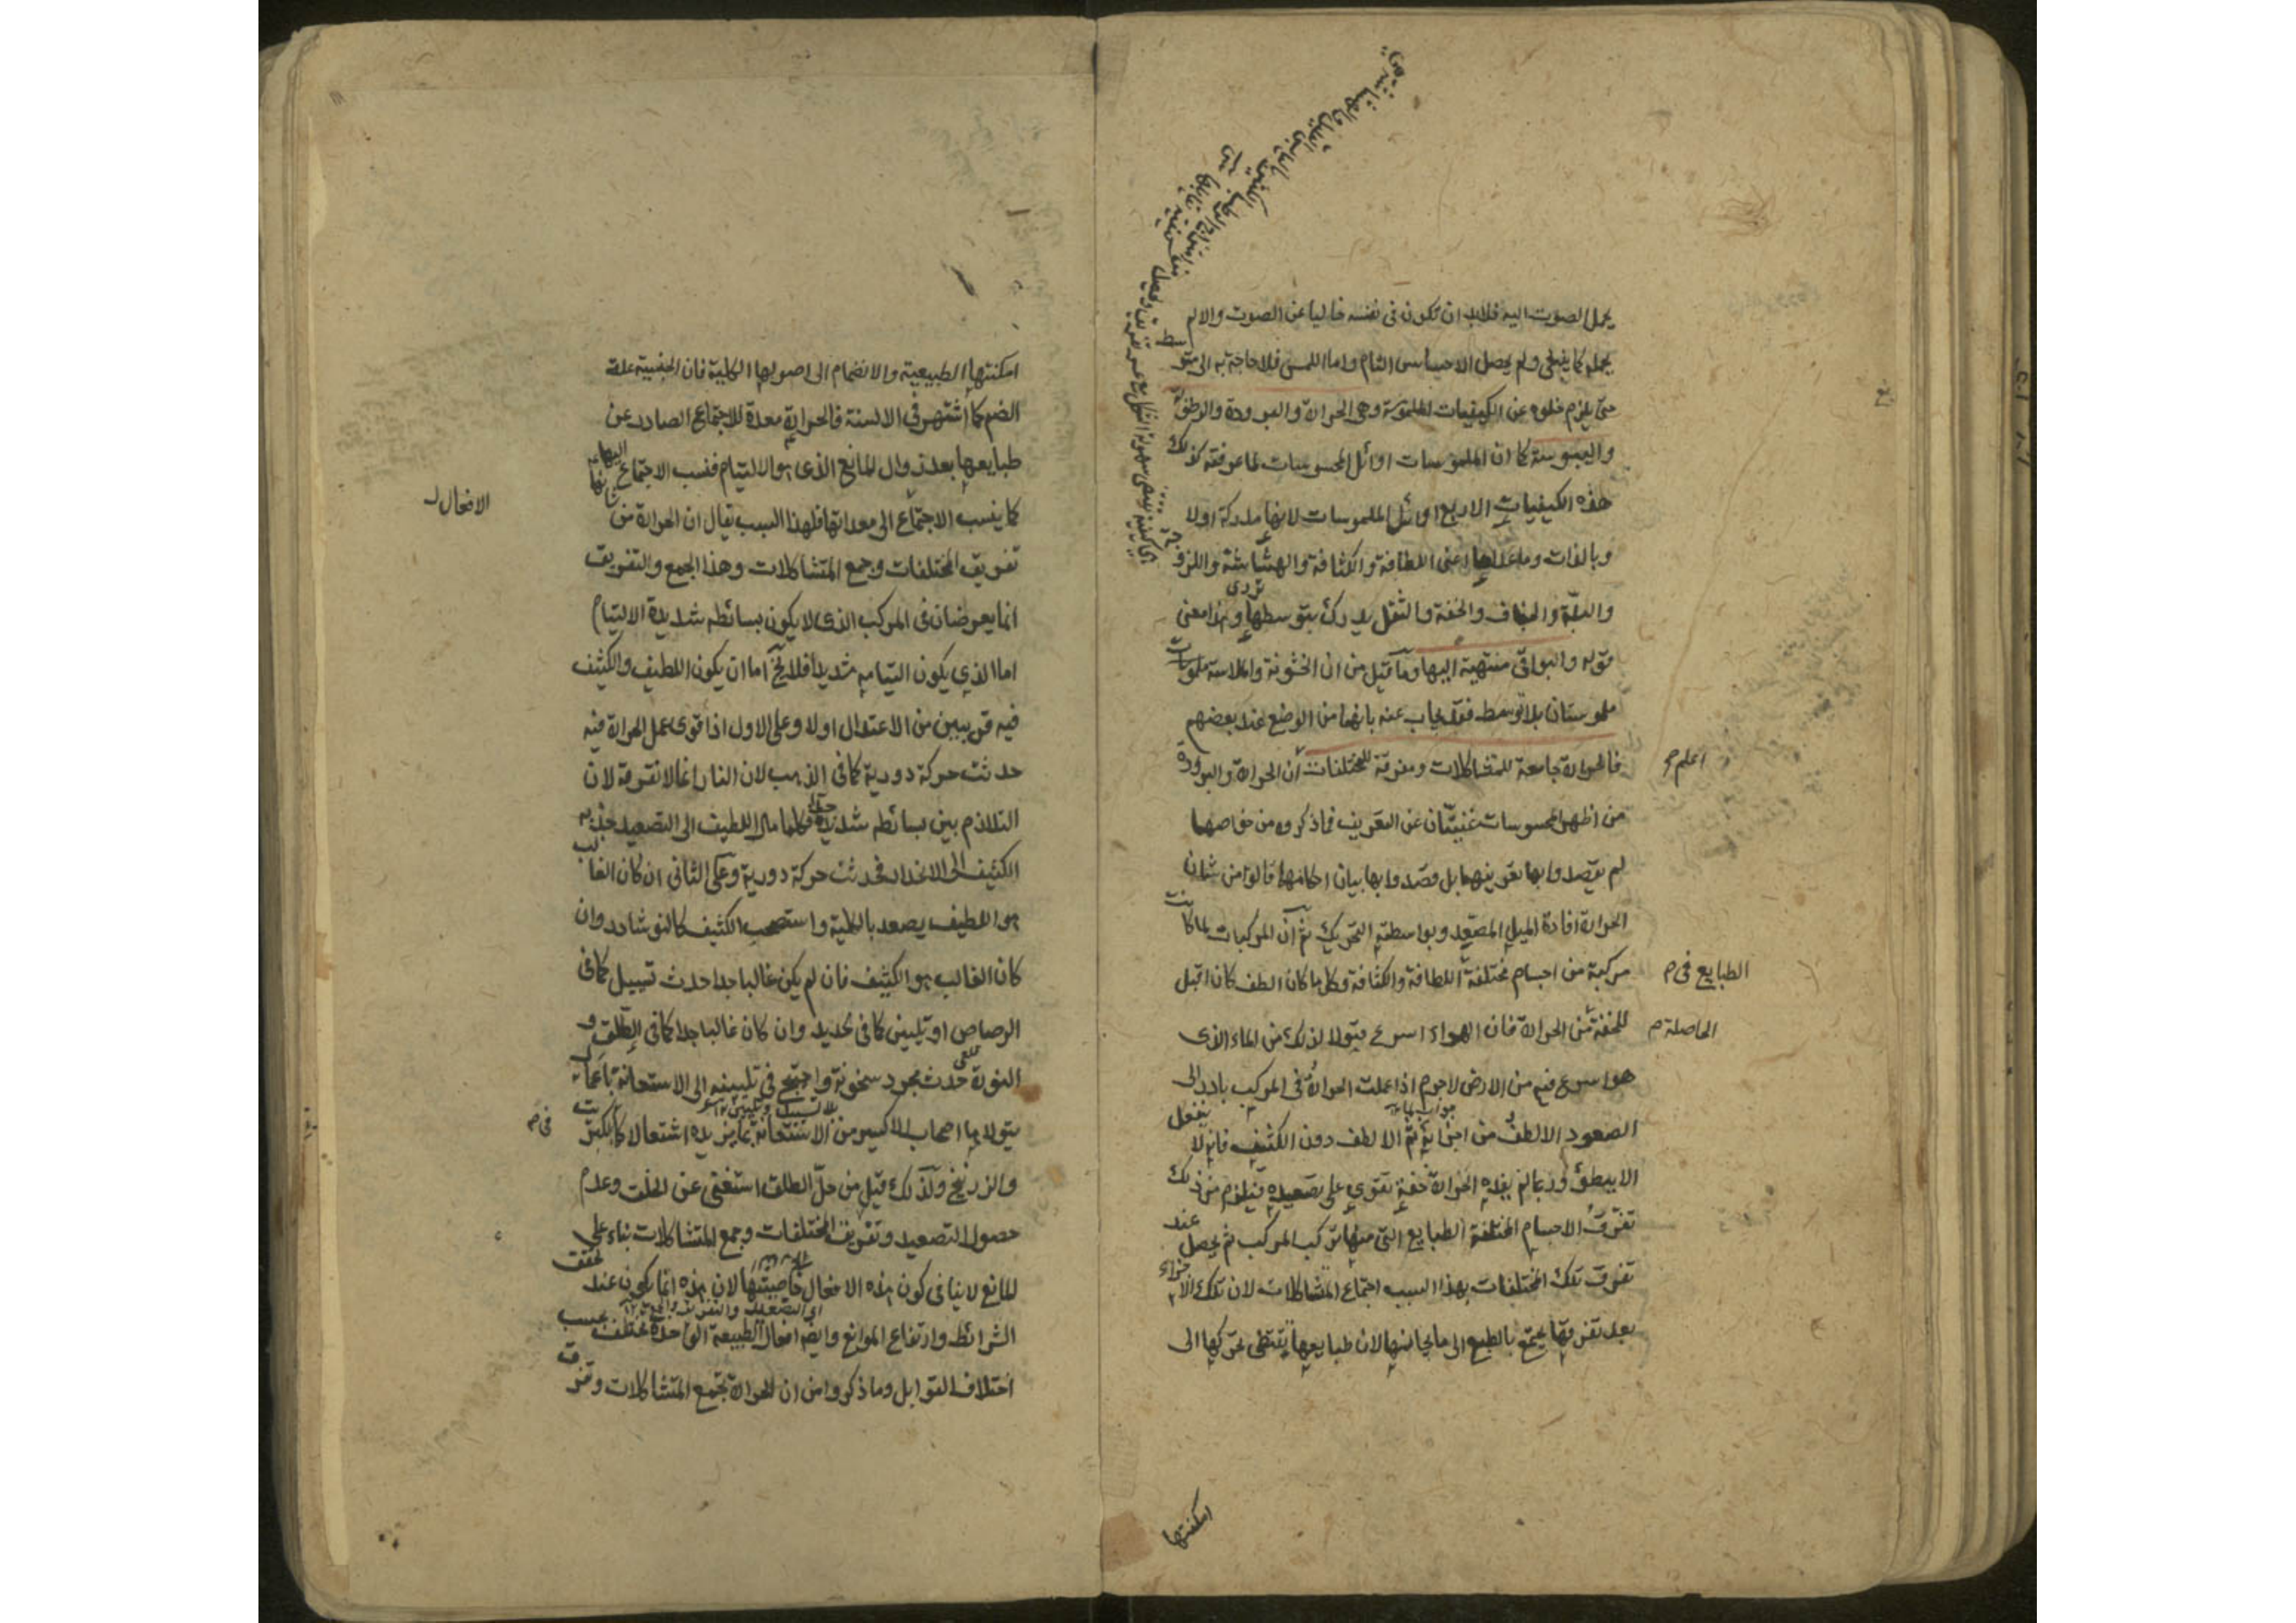 يحمل الصوت اليه فلابد ان تكون فى نفسه خاليا عن الصوت والا لم
يحمله كما ينبغى ولم يحصل الاحساس التام واما اللمس فلا حاجة به الى متوسط
حتى يلزم خلوه عن الكيفيات الملموسة وهى الحرارة والبرودة والرطوبة
واليبوسة كما ان الملموسات اوائل المحسوسات لما عرفته كذلك
هذه الكيفيات الاربع اوائل الملموسات لانها مدركة اولا
وبالذات وما عداها اعنى اللطافة والكثافة والهشاشة واللزوجة
والبلة والجفاف والخفة والثقل يدرك بتوسطها وهذا معنى
قوله والبواقى منتهية اليها وما قيل من ان الخشونة والملاسة
ملموستان بلا توسط فقد يجاب عنه بانهما من الوضع عند بعضهم
فالحرارة جامعة للمتشاكلات ومفرقة للمختلفات ان الحرارة والبرودة
اعلم
من اظهر المحسوسات غنيتان عن التعريف فما ذكروه من خواصها
لم يقصدوا بها تعريفهما بل قصدوا بها بيان احكامها قالوا من شان
الحرارة افادة الميل المصعد وبواسطته التحريك ثم ان المركبات لما كانت
مركبة من اجسام مختلفة اللطافة والكثافة وكل ما كان الطف كان اقبل
الطبايع فى م
للخفة من الحرارة فان الهواء اسرع قبولا لذلك من الماء الذى
الحاصلة م
هو اسرع فيه من الارض لاجرم اذا عملت الحرارة فى المركب بادر الى
الصعود الالطف من اجزائه ثم الالطف دون الكثيف فانه لا ينفعل
الا ببطؤ وربما لم يفده الحرارة خفة تقوى على تصعيده فيلزم من ذلك
تفرق الاجسام المختلفة الطبايع التى منها تركب المركب ثم يحصل عند
تفرق تلك المختلفات بهذا السبب اجتماع المتشاكلات لان تلك الاجزاء
بعد تفرقها يجتمع بالطبع الى ما يجانسها لان طبايعها يقتضى تحركها الى
امكنتها
امكنتها الطبيعية والانضمام الى اصولها الكلية فان الجنسية علة
الضم كما اشتهر فى الالسنة فالحرارة معدة للاجتماع الصادر عن
طبايعها بعد زوال المانع الذى هو الالتيام فنسب الاجتماع اليها
كما ينسب الاجتماع الى معداتها فلهذا السبب يقال ان الحرارة من شانها
الافعال
تفريق المختلفات وجمع المتشاكلات وهذا الجمع والتفريق
انما يعرضان فى المركب الذى لا يكون بسائطه شديدة الالتيام
اما الذى يكون التيامه شديدا فلا يخ اما ان يكون اللطيف والكثيف
فيه قريبين من الاعتدال اولا وعلى الاول اذا قوى عمل الحرارة فيه
حدثت حركة دورية كما فى الذهب لان النار اغالا تفرقه لان
التلازم بين بسائطه شديد جدا فكلما مال اللطيف الى التصعيد جذبه
الكثيف الى الانحدار فحدثت حركة دورية وعلى الثانى ان كان الغالب
هو اللطيف يصعد بالكلية واستصحب الكثيف كالنوشادر وان
كان الغالب هو الكثيف فان لم يكن غالبا جدا حدث تسييل كما فى
الرصاص او تليين كما فى الحديد وان كان غالبا جدا كما فى الطلق و
النورة حدث مجرد سخونة واحتيج فى تليينه الى الاستعانة باعمال
يتولاها اصحاب الاكسير من الاستعانة بما يزيده اشتعالا كالكبريت
فى م
والزرنيخ ولذلك قيل من حل الطلق استغنى عن الخلق وعدم
حصول التصعيد وتفريق المختلفات وجمع المتشاكلات بناء على
المانع لا ينافى كون هذه الافعال خاصيتها لان هذه انما يكون عند تحقق
الشرائط وارتفاع الموانع وايضا افعال الطبيعة الواحدة تختلف بحسب
اختلاف القوابل وما ذكروا من ان الحرارة تجمع المتشاكلات وتفرق